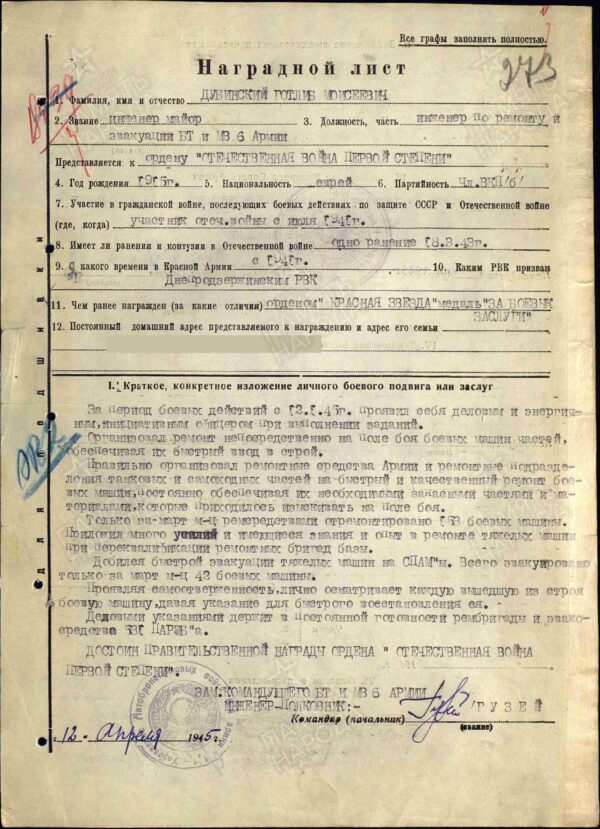 Все графы заполнять полностью.
273
Наградной лист
1. Фамилия, имя и отчество ДУБИНСКИЙ ГОТЛИБ МОИСЕЕВИЧ
2. Звание инженер майор 3. Должность, часть инженер по ремонту и
эвакуации БТ и МВ 6 Армии
Представляется к ордену "ОТЕЧЕСТВЕННАЯ ВОЙНА ПЕРВОЙ СТЕПЕНИ"
4. Год рождения 1915г. 5. Национальность еврей 6. Партийность Чл.ВКП'б'
7. Участие в гражданской войне, последующих боевых действиях по защите СССР и Отечественной войне
(где, когда) участник отеч.войны с июля 1941г.
8. Имеет ли ранения и контузии в Отечественной войне одно ранение 18.3.43г.
9. С какого времени в Красной Армии с 1941г. 10. Каким РВК призван
Днепродзержинским РВК
11. Чем ранее награжден (за какие отличия) орденом" КРАСНАЯ ЗВЕЗДА"медаль"ЗА БОЕВЫЕ
ЗАСЛУГИ"
12. Постоянный домашний адрес представляемого к награждению и адрес его семьи
Для подшивки
1. Краткое, конкретное изложение личного боевого подвига или заслуг
За период боевых действий с 12.1.45г. проявил себя деловым и энергич-
ным,инициативным офицером при выполнении заданий.
Организовал ремонт непосредственно на поле боя боевых машин частей,
обеспечивая их быстрый ввод в строй.
Правильно организовал ремонтные средства Армии и ремонтные подразде-
ления танковых и самоходных частей на быстрый и качественный ремонт бое-
вых машин,постоянно обеспечивая их необходимыми запасными частями и ма-
териалами,которые приходилось изыскивать на поле боя.
Только за март м-ц ремсредствами отремонтировано боевых машины.
Приложил много усилий и имеющиеся знания и опыт в ремонте тяжелых машин
при переквалификации ремонтных бригад базы.
Добился быстрой эвакуации тяжелых машин на СПАМ'ы. Всего эвакуировано
только за март м-ц 42 боевых машины.
Проявляя самоотверженность,лично осматривает каждую вышедшую из строя
боевую машину,давая указание для быстрого восстановления ея.
Деловыми указаниями держит в постоянной готовности рембригады и эвако-
средства
ДОСТОИН ПРАВИТЕЛЬСТВЕННОЙ НАГРАДЫ ОРДЕНА " ОТЕЧЕСТВЕННАЯ ВОЙНА
ПЕРВОЙ СТЕПЕНИ".
ЗАМ.КОМАНДУЮЩЕГО БТ И МВ 6 АРМИИ
ИНЖЕНЕР-ПОЛКОВНИК:- /ГУЗЕЙ/
Командир (начальник)
(звание)
12. апреля 1945г.